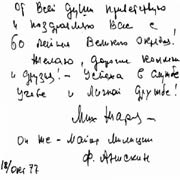 От всей души приветствую
и поздравляю Вас с
60 летием Великого Октября!
Желаю, дорогие
и друзья! - Успеха в службе
учебе и личной дружбе!
Мих Жаров -
Он же - Майор Милиции
Ф. Анискин
18/окт 77